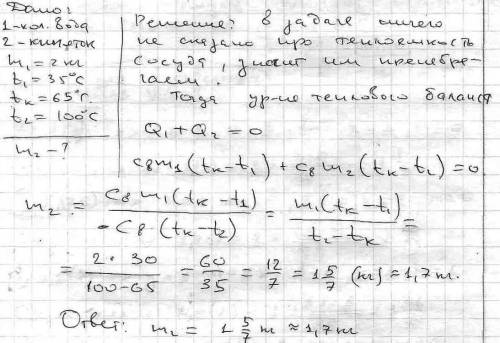 Дано:
1-хол. вода
2-кипяток
m₁ = 2 кг
t₁ = 35°C
tк = 65°C
t₂ = 100°C
m₂ - ?
Решение: в задаче ничего
не сказано про теплоемкость
сосуда, значит им пренебре-
гаем.
Тогда ур-ие теплового баланса
Q₁ + Q₂ = 0
cвm₁(tк-t₁) + cвm₂(tк-t₂) = 0
m₂ = cв m₁(tк - t₁) / -cв (tк - t₂) = m₁(tк - t₁) / t₂ - tк =
= 2 · 30 / 100 - 65 = 60/35 = 12/7 = 1 5/7 (кг) ≈ 1,7 кг.
Ответ: m₂ = 1 5/7 кг ≈ 1,7 кг